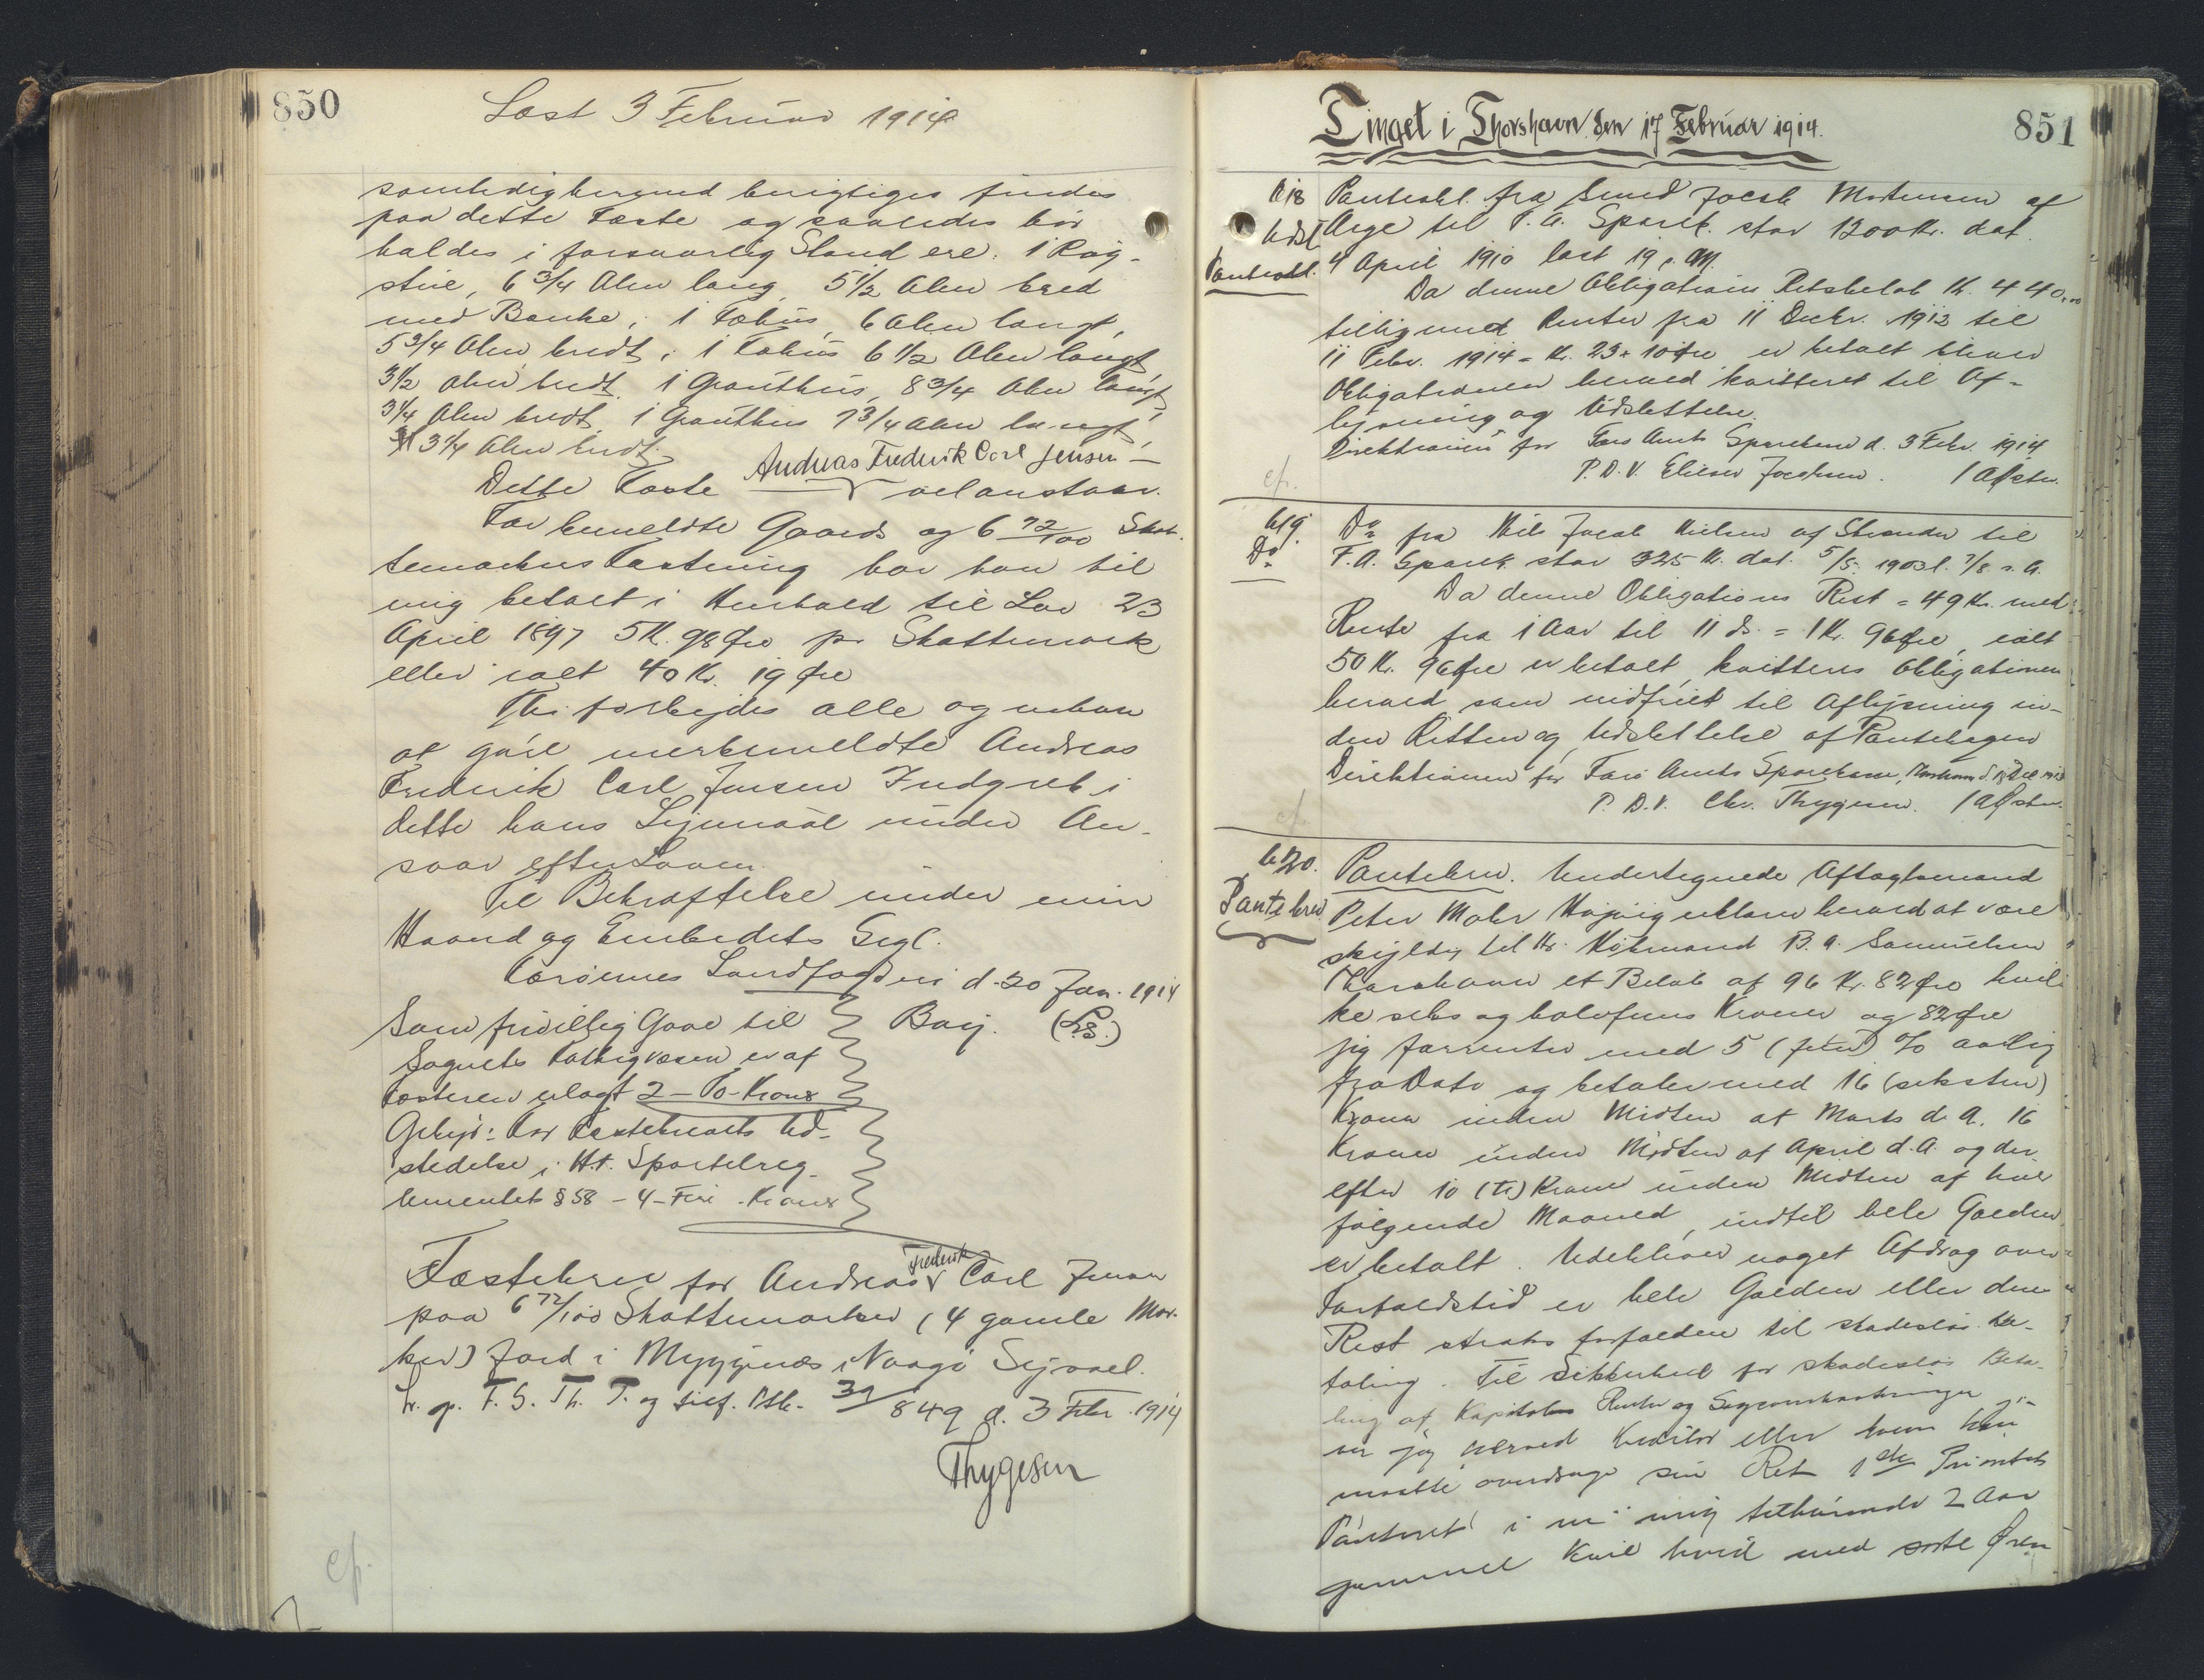 850
Læst 3 Februar 1914
somhedigherved berigtiges findes
paa dette Fæste og saaledes bør
holdes i forsvarlig Stand ere: 1 Røg-
stue, 6 3/4 Alen lang, 5 1/2 Alen bred
med Banke; 1 Fæhus, 6 Alen langt,
5 3/4 Alen bredt; 1 Fæhus 6 1/2 Alen langt,
3 1/2 Alen bredt, 1 Grauthus, 8 3/4 Alen langt,
3 1/4 Alen bredt, 1 Grauthus 7 3/4 Alen langt,
3 3/4 Alen bredt.
Dette Fæste Andreas Frederik Carl Jensen vel anstaar.
For bemeldte Gaards og 6 72/100 Skat-
temarkers Fæstning har han til
mig betalt i Henhold til Lov 23
April 1897 5 Kr. 98 Øre pr Skattemark
eller ialt 40 Kr. 19 Øre
Thi forbydes alle og enhver
at gøre merbemeldte Andreas
Frederik Carl Jensen Indgreb i
dette hans Lejemaal under An-
svar efter Loven.
Til Bekræftelse under min
Haand og Embedets Segl.
Færøernes Landfogderi d. 20 Jan. 1914
Som frivillig Gave til Bærj. (L.S.)
Sognets Fattigvæsen er af
Fæsteren erlagt 2 - To - Kroner
Gebyr: For Fæstebrevets Ud-
stedelse i H.t. Sportelreg-
lementets § 58 - 4 - Fire - Kroner
Fæstebrev for Andreas Frederik Carl Jensen
paa 6 72/100 Skattemarker (4 gamle Mar-
ker) Jord i Myggenæs, Vaagø Sysael.
L. p. F. S. Th. T. og tilf. Ptb. 39/849 d. 3 Febr. 1914
Thygesen
cf.
Tinget i Thorshavn den 17 Februar 1914.
851
618
Udsl
Panteobl.
Panteobl. fra Smed Jacob Mortensen af
Arge til F. A. Spark. stor 1200 Kr. dat.
4 April 1910 læst 19 s. M.
Da denne Obligations Restbeløb Kr. 440,00
tilligemed Renter fra 11 Decbr. 1913 til
11 Febr. 1914 = Kr. 23 + 10 Øre er betalt bliver
Obligationen herved kvitteret til Af-
lysning og Udslettelse.
Direktionen for Færø Amts Sparekasse d. 3 Febr. 1914
P. D. V. Elieser Jacobsen. / A Øster.
cf.
619.
Do
Do fra Niels Jacob Nielsen af Strender til
F. A. Spark. stor 325 Kr. dat. 5/5 1903 l. 7/8 s. A.
Da denne Obligations Rest = 49 Kr. med
Rente fra 1 Aar til 11 ds. = 1 Kr. 96 Øre, ialt
50 Kr. 96 Øre er betalt, kvitteres Obligationen
herved som indfriet til Aflysning in-
den Retten og Udslettelse af Pantebogen
Direktionen for Færø Amts Sparekasse, Thorshavn d.
P. D. V. Chr. Thygesen. / A Øster.
cf.
620.
Pantebrev
Pantebrev. Undertegnede Aftægtsmand
Peter Mohr Højvig erklærer herved at være
skyldig til Hr. Købmand B. A. Samuelsen
Thorshavn et Beløb af 96 Kr. 82 Øre hvil-
ke seks og halvfems Kroner og 82 Øre
jeg forrenter med 5 (fem) % aarlig
fra Dato og betaler med 16 (seksten)
Kroner inden Midten af Marts d. A. 16
Kroner inden Midten af April d. A. og der-
efter 10 (ti) Kroner inden Midten af hver
følgende Maaned, indtil hele Gælden
er betalt. Udebliver noget Afdrag over
Forfaldstid er hele Gælden eller den
Rest straks forfalden til skadesløs Be-
taling. Til Sikkerhed for skadesløs Beta-
ling af Kapital Renter og Sagsomkostninger gi-
ver jeg herved Kreditor eller hvem han
maatte overdrage sin Ret 1ste Prioritets
Panteret i en mig tilhørende 2 Aar
gammel Kvie hvid med sorte Øren